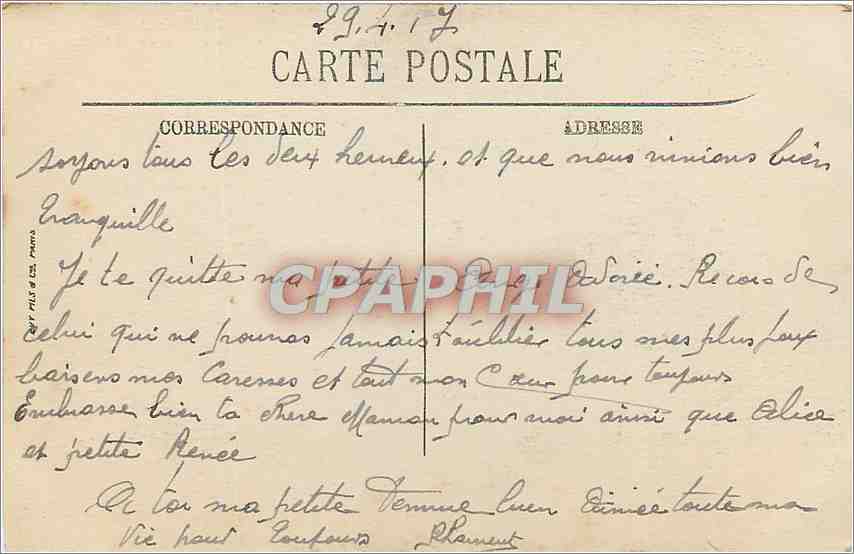 29.4.17
CARTE POSTALE
CORRESPONDANCE
ADRESSE
soyons tous les deux heureux. et que nous vivions bien
tranquille
Je te quitte ma petite Adorée. Recois de
celui qui ne pourras jamais t'oublier tous mes plus doux
baisers mes Caresses et tout mon Cœur pour toujours
Embrasse bien ta chere Maman pour moi ainsi que Alice
et petite Renée
A toi ma petite femme bien Aimée toute ma
vie pour toujours
CPAPHIL